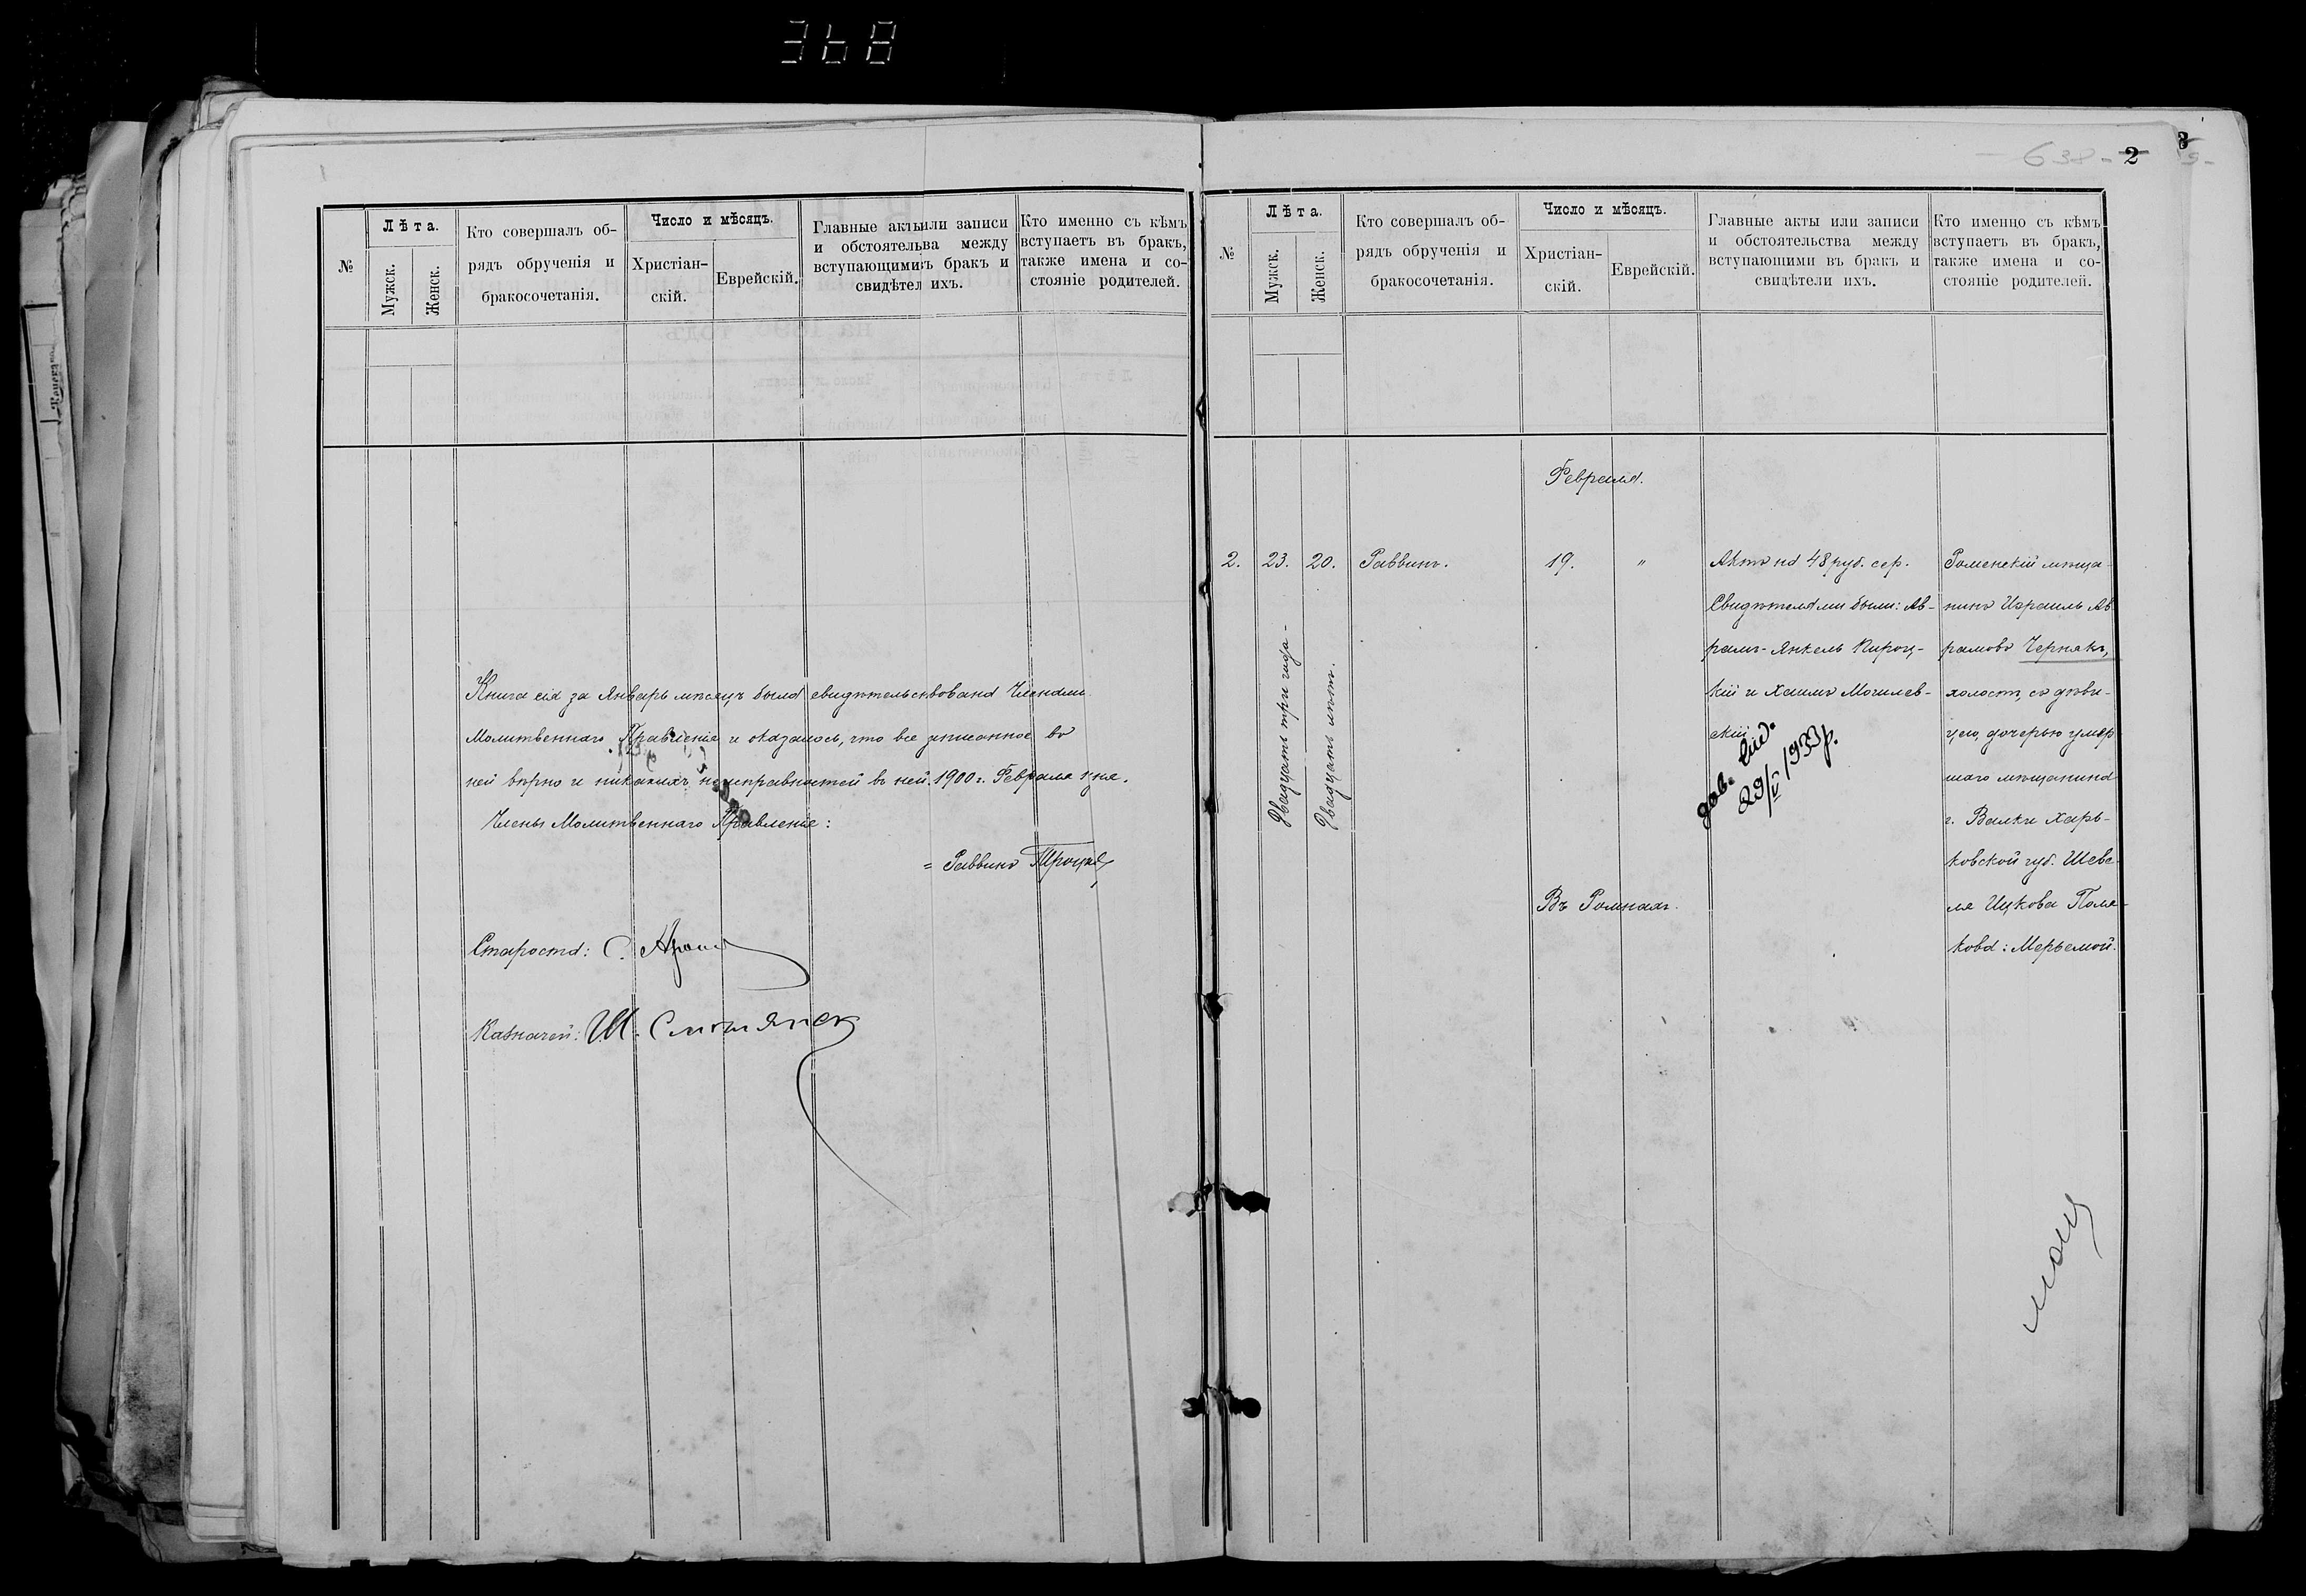 368
№
Лѣта.
Мужск.
Женск.
Кто совершалъ об-
рядъ обрученія и
бракосочетанія.
Число и мѣсяцъ.
Христіан-
скій.
Еврейскій.
Главные акты или записи
и обстоятельва между
вступающими въ бракъ и
свидѣтел ихъ.
Кто именно съ кѣмъ
вступаетъ въ бракъ,
также имена и со-
стояніе родителей.
Книга сія за Январь мѣсяцъ была свидѣтельствована Членами
Молитвеннаго Правленія и оказалось, что все записанное въ
ней вѣрно и никакихъ неисправностей въ ней. 1900 г. Февраля дня.
Члены Молитвеннаго Правленія:
= Раввинъ
Староста: С.
Казначей: Ш.
638 - 2
№
Лѣта.
Мужск.
Женск.
Кто совершалъ об-
рядъ обрученія и
бракосочетанія.
Число и мѣсяцъ.
Христіан-
скій.
Еврейскій.
Главные акты или записи
и обстоятельства между
вступающими въ бракъ и
свидѣтели ихъ.
Кто именно съ кѣмъ
вступаетъ въ бракъ,
также имена и со-
стояніе родителей.
Февраля.
2.
23.
Двадцать три года -
20.
Двадцать лѣтъ.
Раввинъ.
19.
"
Въ Ромнахъ.
Актъ на 48 руб. сер.
Свидѣтелями были: Ав-
рамъ-Янкель Пироц-
кій и Хаимъ Могилев-
скій
29/V 1933 р.
Роменскій мѣща-
нинъ Израиль Аб-
рамовъ Чернякъ,
холостъ, съ дѣви-
цею, дочерью умер
шаго мѣщанина
г. Валки Харь-
ковской губ. Шевс-
ля Ицкова Поля-
кова: Мерьемой.